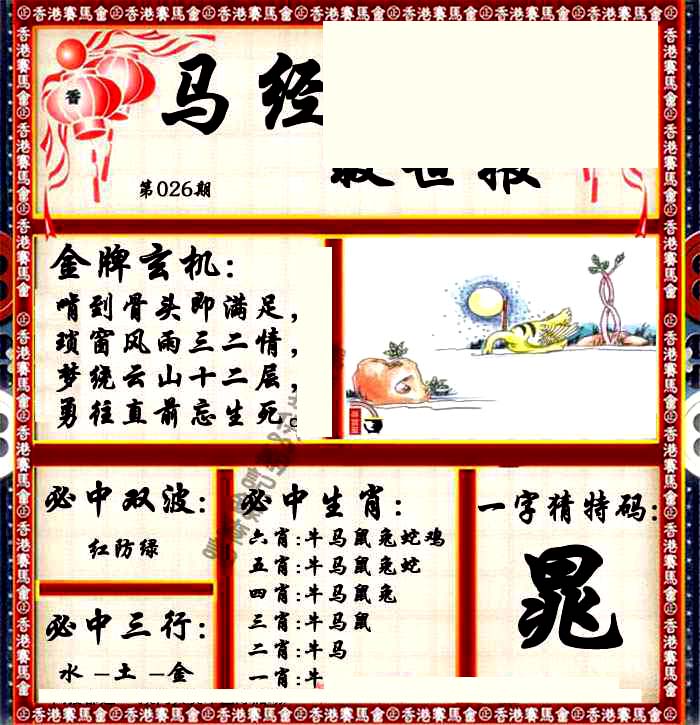 香港賽馬會 香港賽馬會 香港賽馬會 香港賽馬會 香港賽馬會 香港賽馬會 香港賽馬會
香
马经
救世报
第026期
金牌玄机:
啃到骨头即满足,
琐窗风雨三二情,
梦绕云山十二层,
勇往直前忘生死。
必中双波:
红防绿
必中三行:
水-土-金
必中生肖:
六肖:牛马鼠兔蛇鸡
五肖:牛马鼠兔蛇
四肖:牛马鼠兔
三肖:牛马鼠
二肖:牛马
一肖:牛
一字猜特码:
晁
香港賽馬會 香港賽馬會 香港賽馬會 香港賽馬會 香港賽馬會 香港賽馬會 香港賽馬會